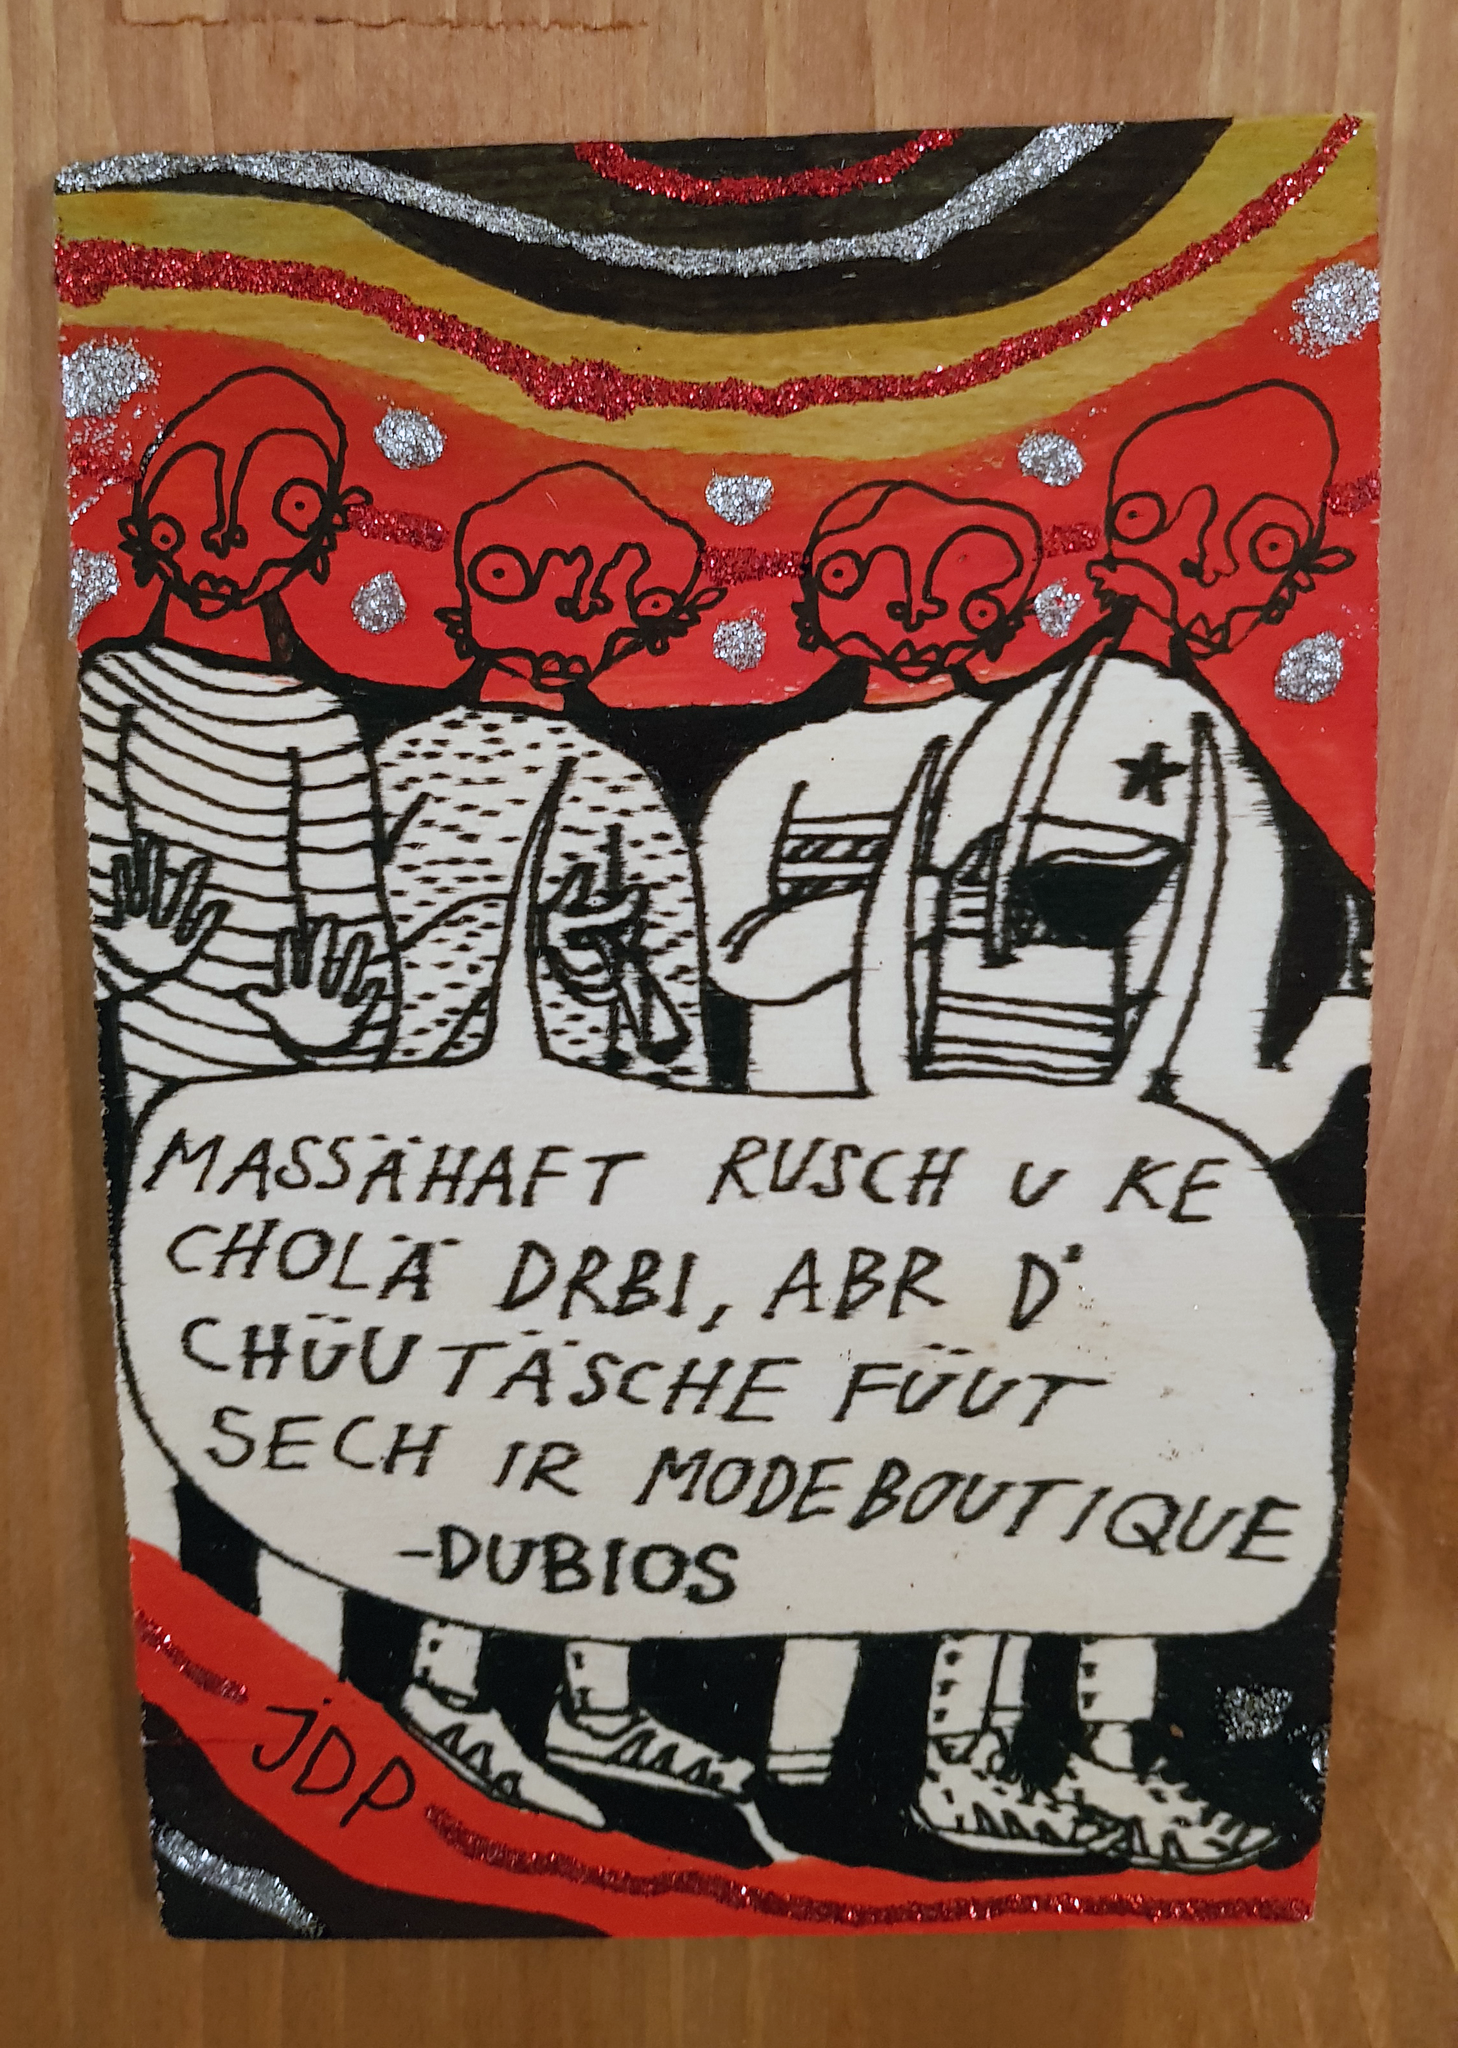 MASSÄHAFT RUSCH U KE
CHOLÄ DRBI, ABR D'
CHÜUTÄSCHE FÜUT
SECH IR MODEBOUTIQUE
-DUBIOS
JDP